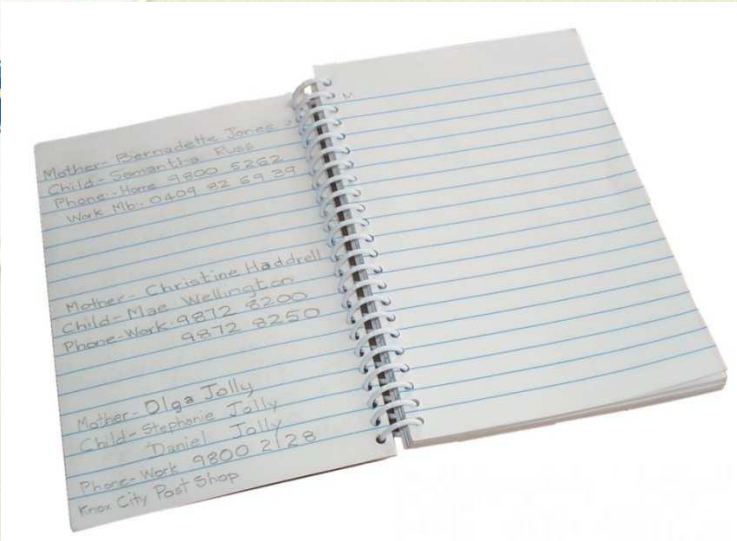 Mother- Bernadette Jones
Child- Samantha Russ
Phone:- Home 9800 5262
Work Mb:. 0409 82 69 39
Mother- Christine Haddrell
Child- Mae Wellington
Phone- Work. 9872 8200
9872 8250
Mother- Olga Jolly
Child- Stephanie Jolly
Daniel Jolly
Phone- Work 9800 2128
Knox City Post Shop
M